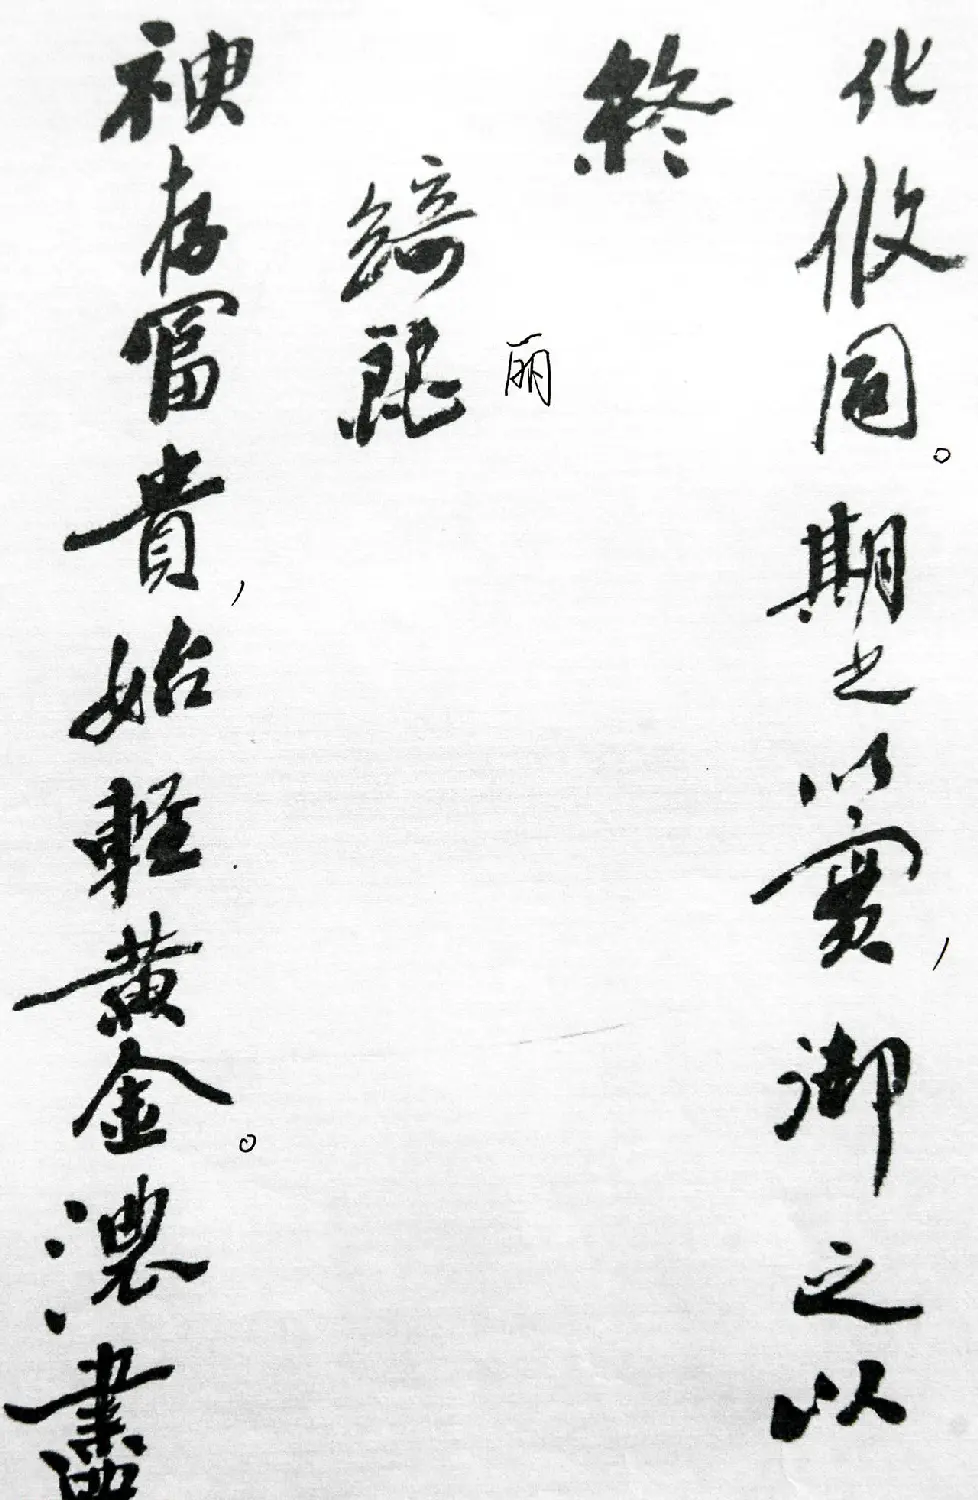 化攸同。期之以實，御之以
終
丽
綺麗
神存富貴，始軽黃金。濃盡